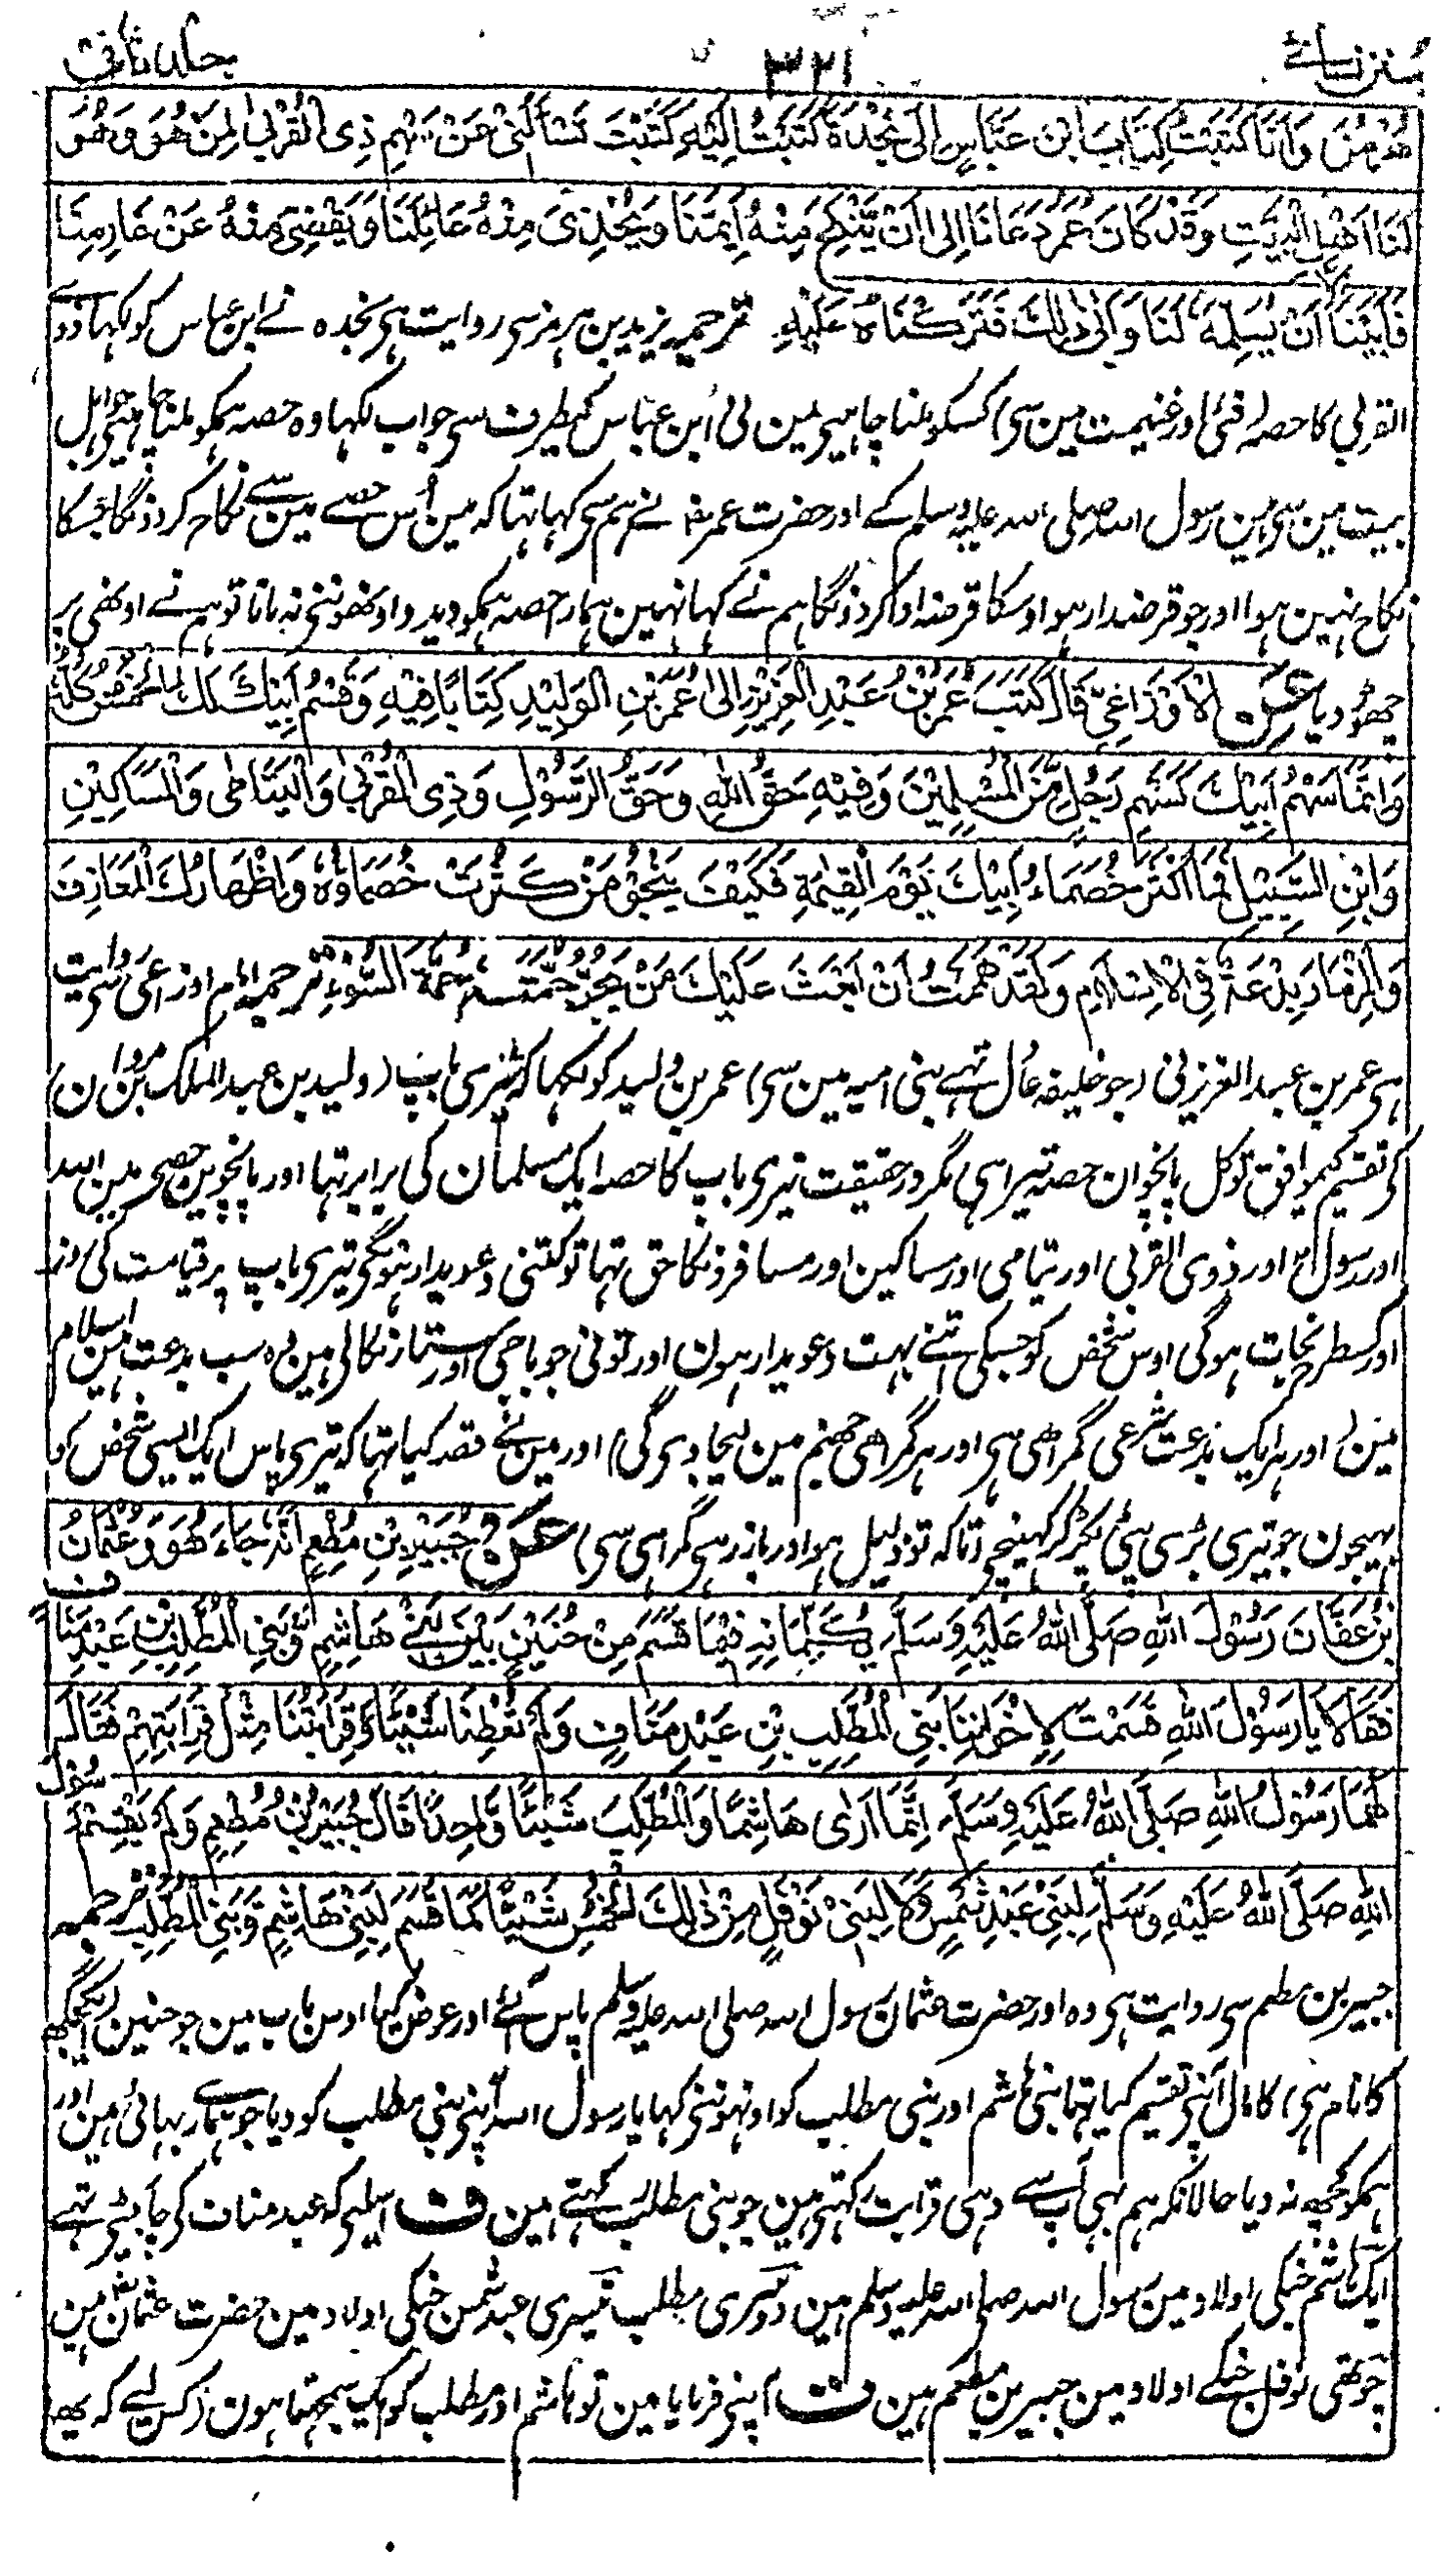 سنن نسائے ۳۲۱ جلد ثانی
هُرْمُزَ وَاَنَا كَتَبْتُ كِتَابَ ابْنِ عَبَّاسٍ اِلٰى نَجْدَةَ كَتَبْتُ اِلَيْهِ كَتَبْتَ تَسْأَلُنِىْ عَنْ سَهْمِ ذِى الْقُرْبٰى لِمَنْ هُوَ وَهُوَ
لَنَا اَهْلَ الْبَيْتِ وَقَدْ كَانَ عُمَرُ دَعَانَا اِلٰى اَنْ يُّنْكِحَ مِنْهُ اَيِّمَنَا وَيُحْذِىَ مِنْهُ عَائِلَنَا وَيَقْضِىَ مِنْهُ عَنْ غَارِمِنَا
فَاَبَيْنَا اِلَّا اَنْ يُسَلِّمَهُ لَنَا وَاَبٰى ذٰلِكَ فَتَرَكْنَاهُ عَلَيْهِ ترجمہ یزید بن ہرمز سی روایت ہی نجدہ نے ابن عباس کو لکہا ذوے
القربی کا حصہ (فئی اور غنیمت مین سی) کسکو ملنا چاہیی مین نی ابن عباس کیطرف سی جواب لکہا وہ حصہ ہمکو ملنا چاہیی جو اہل
بیت مین سی ہین رسول اللہ صلی اللہ علیہ وسلم کے اور حضرت عمر رضہ نے ہم سی کہا تہا کہ مین اُس حصے مین سے نکاح کر دونگا جسکا
نکاح نہین ہوا اور جو قرضدار ہو اوسکا قرضہ ادا کر دونگا ہم نے کہا نہین ہمارا حصہ ہمکو دیدو اونھوننی نہ مانا تو ہم نے اونھی پر
چھوڑ دیا عَنِ الْاَوْزَاعِىِّ قَالَ كَتَبَ عُمَرُ بْنُ عَبْدِ الْعَزِيْزِ اِلٰى عُمَرَ بْنِ الْوَلِيْدِ كِتَابًا فِيْهِ وَقَسْمُ اَبِيْكَ لَكَ الْخُمُسُ كُلُّهُ
وَاِنَّمَا سَهْمُ اَبِيْكَ كَسَهْمِ رَجُلٍ مِّنَ الْمُسْلِمِيْنَ وَفِيْهِ حَقُّ اللهِ وَحَقُّ الرَّسُوْلِ وَذِى الْقُرْبٰى وَالْيَتَامٰى وَالْمَسَاكِيْنِ
وَابْنِ السَّبِيْلِ فَمَا اَكْثَرَ خُصَمَاءُ اَبِيْكَ يَوْمَ الْقِيٰمَةِ فَكَيْفَ يَنْجُوْ مَنْ كَثُرَتْ خُصَمَاؤُهُ وَاِظْهَارُكَ الْمَعَازِفَ
وَالْمِزْمَارَ بِدْعَةٌ فِى الْاِسْلَامِ وَلَقَدْ هَمَمْتُ اَنْ اَبْعَثَ عَلَيْكَ مَنْ يَّجُزُّ جُمَّتَكَ جُمَّةَ السُّوْءِ ترجمہ امام اوزاعی سی روایت
ہی عمر بن عبد العزیز نی (جو خلیفہ عادل تہے بنی امیہ مین سی) عمر بن ولید کو لکہا کہ تیری باپ (ولید بن عبد الملک بن مروان)
کی تقسیم کیموافق تو کل پانچوان حصہ تیرا ہی مگر درحقیقت تیری باپ کا حصہ ایک مسلمان کی برابر تہا اور پانچوین حصی مین اللہ
اور رسول اور ذوی القربی اور یتامی اور مساکین اور مسافرونکا حق تہا تو کتنی دعویدار ہونگی تیری باپ پر قیامت کی روز
اور کسطرح نجات ہوگی اوس شخص کو جسکی اتنے بہت دعویدار ہون اور تونی جو باجی اور ستار نکالی ہین یہ سب بدعت ہین اسلام
مین (اور ہر ایک بدعت شرعی گمراہی ہی اور ہر گمراہی جہنم مین لیجاوی گی) اور مین نے قصد کیا تہا کہ تیری پاس ایک ایسی شخص کو
بہیجون جو تیری بڑی بڑی پٹی پکڑ کر کہینچے (تاکہ تو ذلیل ہو اور باز رہی گمراہی سی) عَنْ جُبَيْرِ بْنِ مُطْعِمٍ اَنَّهُ جَاءَ هُوَ وَعُثْمَانُ
بْنُ عَفَّانَ رَسُوْلَ اللهِ صَلَّى اللهُ عَلَيْهِ وَسَلَّمَ يُكَلِّمَانِهِ فِيْمَا قَسَمَ مِنْ حُنَيْنٍ بَيْنَ بَنِىْ هَاشِمٍ وَّبَنِى الْمُطَّلِبِ بْنِ عَبْدِ مَنَافٍ
فَقَالَا يَا رَسُوْلَ اللهِ قَسَمْتَ لِاِخْوَانِنَا بَنِى الْمُطَّلِبِ بْنِ عَبْدِ مَنَافٍ وَلَمْ تُعْطِنَا شَيْئًا وَّقَرَابَتُنَا مِثْلُ قَرَابَتِهِمْ فَقَالَ
لَهُمَا رَسُوْلُ اللهِ صَلَّى اللهُ عَلَيْهِ وَسَلَّمَ اِنَّمَا اَرٰى هَاشِمًا وَالْمُطَّلِبَ شَيْئًا وَّاحِدًا قَالَ جُبَيْرُ بْنُ مُطْعِمٍ وَلَمْ يَقْسِمْ رَسُوْلُ
اللهِ صَلَّى اللهُ عَلَيْهِ وَسَلَّمَ لِبَنِىْ عَبْدِ شَمْسٍ وَّلَا لِبَنِىْ نَوْفَلٍ مِنْ ذٰلِكَ الْخُمُسِ شَيْئًا كَمَا قَسَمَ لِبَنِىْ هَاشِمٍ وَّبَنِى الْمُطَّلِبِ ترجمہ
جبیر بن مطعم سی روایت ہی وہ اور حضرت عثمان رسول اللہ صلی اللہ علیہ وسلم پاس آئے اور عرض کیا اوس باب مین جو حنین (ایک جگہہ
کا نام ہی) کا مال آپنی تقسیم کیا تہا بنی ہاشم اور بنی مطلب کو اونہوننی کہا یا رسول اللہ آپنی بنی مطلب کو دیا جو ہمارے بہائی ہین اور
ہمکو کچہہ نہ دیا حالانکہ ہم بہی آپ سے وہی قرابت رکہتی ہین جو بنی مطلب رکہتے ہین ف اسلیی کہ عبد مناف کی چار بیٹی تہے
ایک ہاشم جنکی اولاد مین رسول اللہ صلی اللہ علیہ وسلم ہین دوسری مطلب تیسری عبد شمس جنکی اولاد مین حضرت عثمان ہین
چوتھی نوفل جنکے اولاد مین جبیر بن مطعم ہین ف آپنی فرمایا مین تو ہاشم اور مطلب کو ایک سمجہتا ہون (کس لیے کہ یہہ